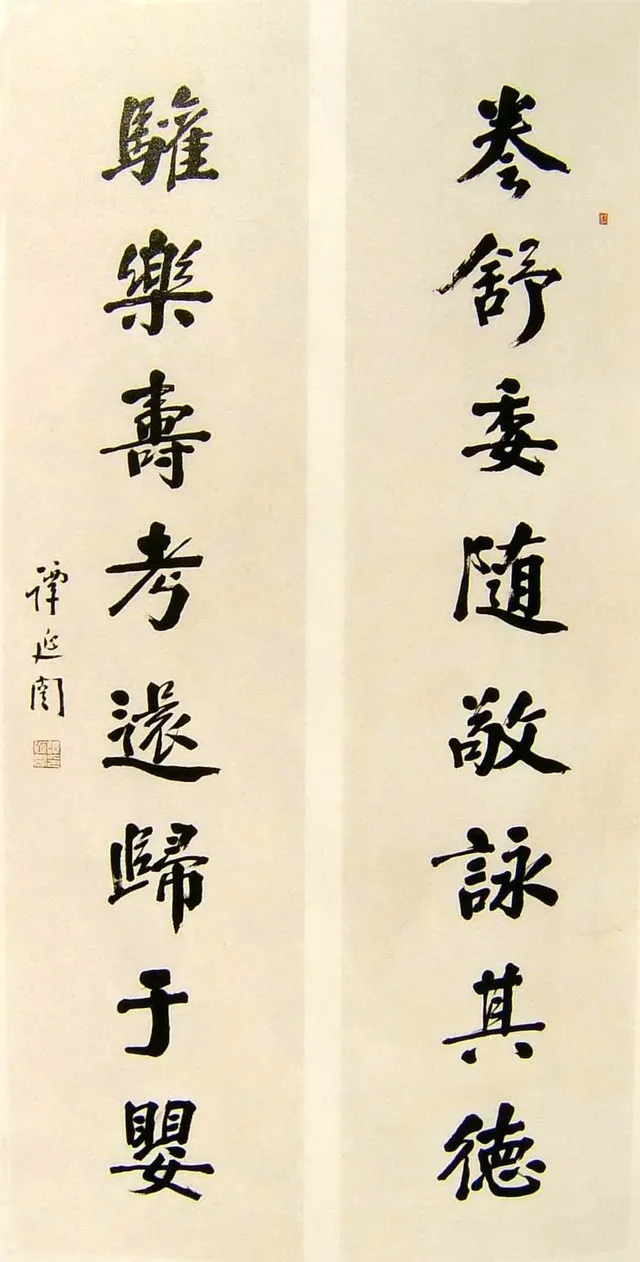 卷舒委随敬詠其德
驩樂壽考還歸于嬰
譚延闓